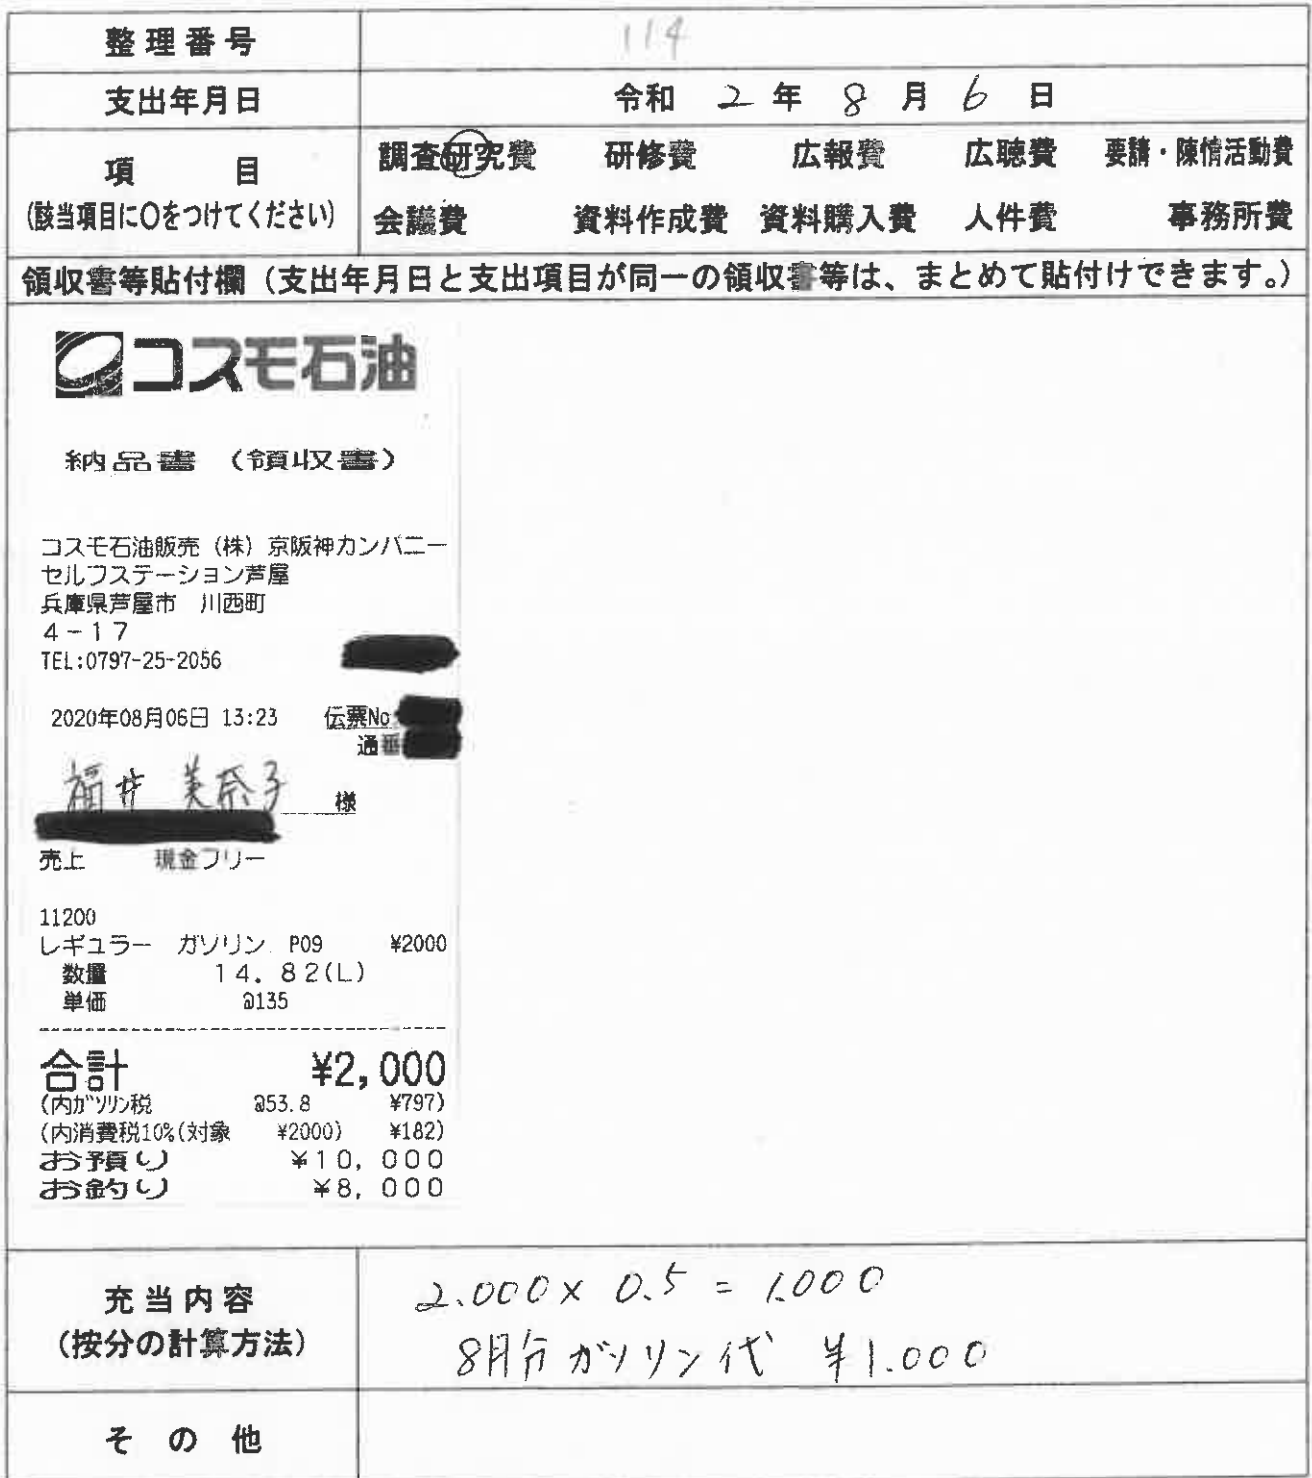 整理番号 114
支出年月日 令和 2 年 8 月 6 日
項 目 調査研究費 研修費 広報費 広聴費 要請・陳情活動費
(該当項目に○をつけてください) 会議費 資料作成費 資料購入費 人件費 事務所費
領収書等貼付欄（支出年月日と支出項目が同一の領収書等は、まとめて貼付けできます。）
コスモ石油
納品書 （領収書）
コスモ石油販売（株）京阪神カンパニー
セルフステーション芦屋
兵庫県芦屋市 川西町
4－17
TEL:0797-25-2056
2020年08月06日 13:23 伝票No
通番
福井 美奈子 様
売上 現金フリー
11200
レギュラー ガソリン P09 ¥2000
数量 14.82(L)
単価 @135
合計 ¥2,000
(内ｶﾞｿﾘﾝ税 @53.8 ¥797)
(内消費税10%(対象 ¥2000) ¥182)
お預り ¥10,000
お釣り ¥8,000
充当内容 2.000× 0.5 = 1.000
(按分の計算方法) 8月分 ガソリン代 ¥1.000
その他